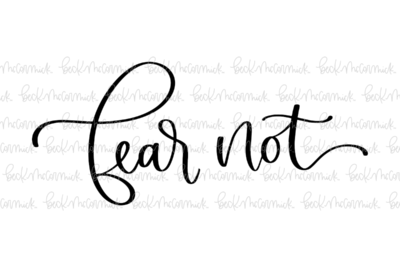 fear not